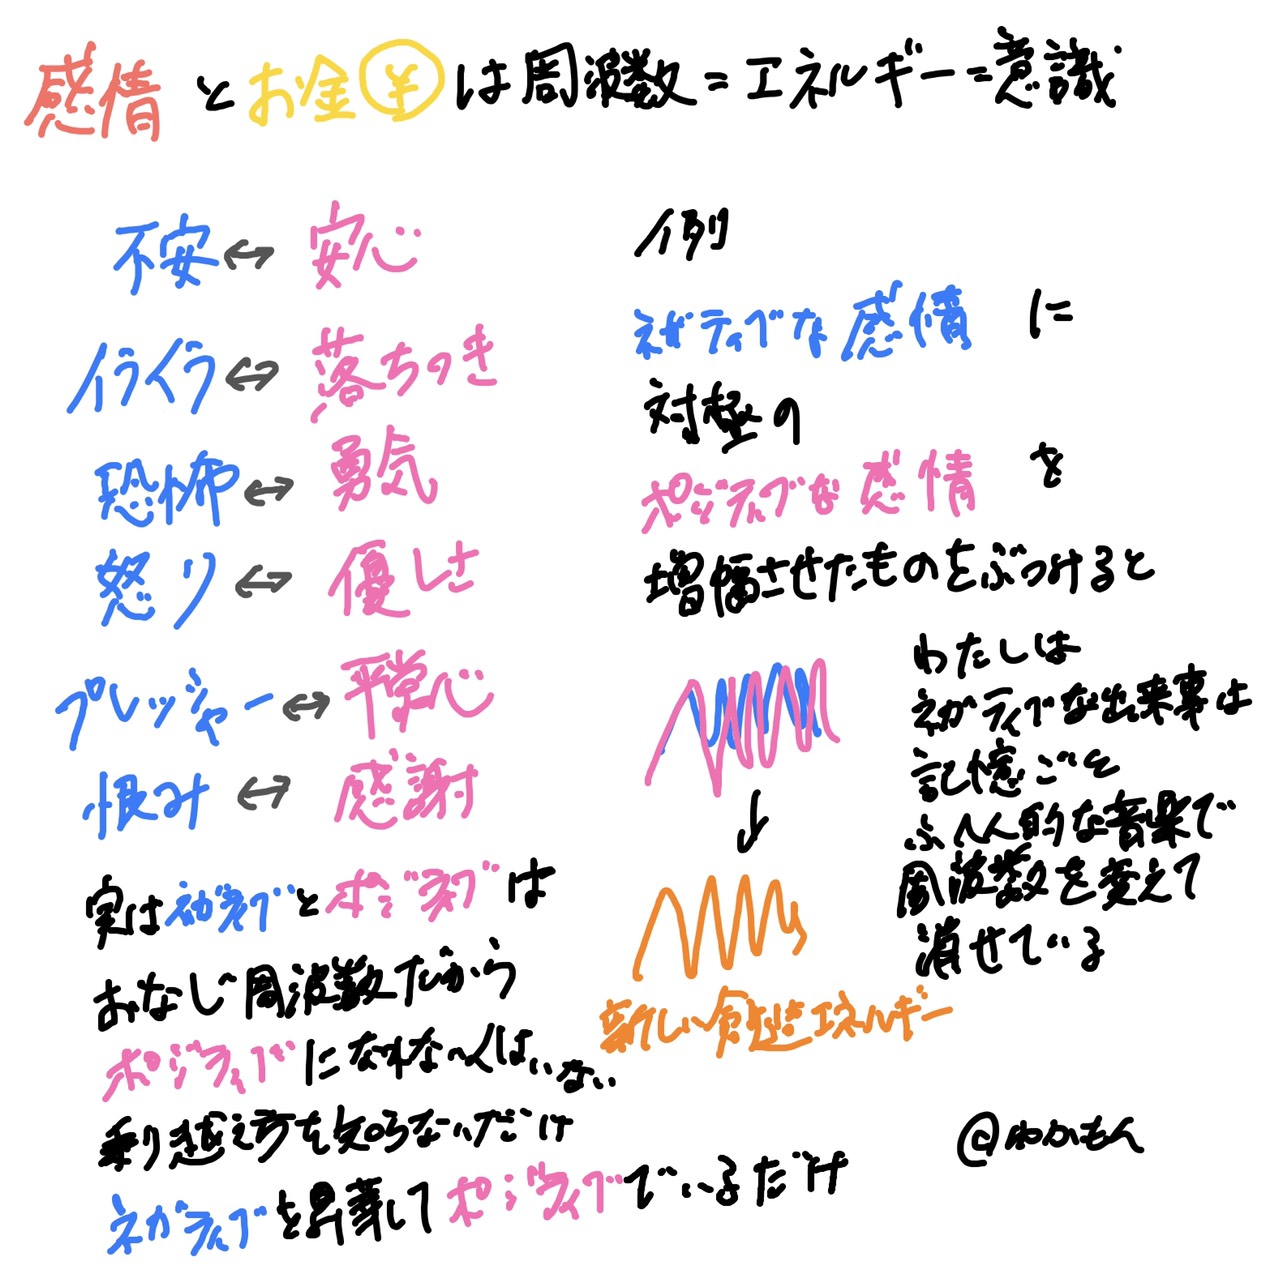 感情とお金¥は周波数=エネルギー=意識
不安↔安心
イライラ↔落ちつき
恐怖↔勇気
怒り↔優しさ
プレッシャー↔平常心
恨み↔感謝
実はネガティブとポジティブは
おなじ周波数だから
ポジティブになれない人はいない
乗り越え方を知らないだけ
ネガティブを昇華してポジティブでいるだけ
例
ネガティブな感情に
対極の
ポジティブな感情を
増幅させたものをぶつけると
↓
新しい創造エネルギー
わたしは
ネガティブな出来事は
記憶ごと
ふへん的な音楽で
周波数を変えて
消せている
@わかもん